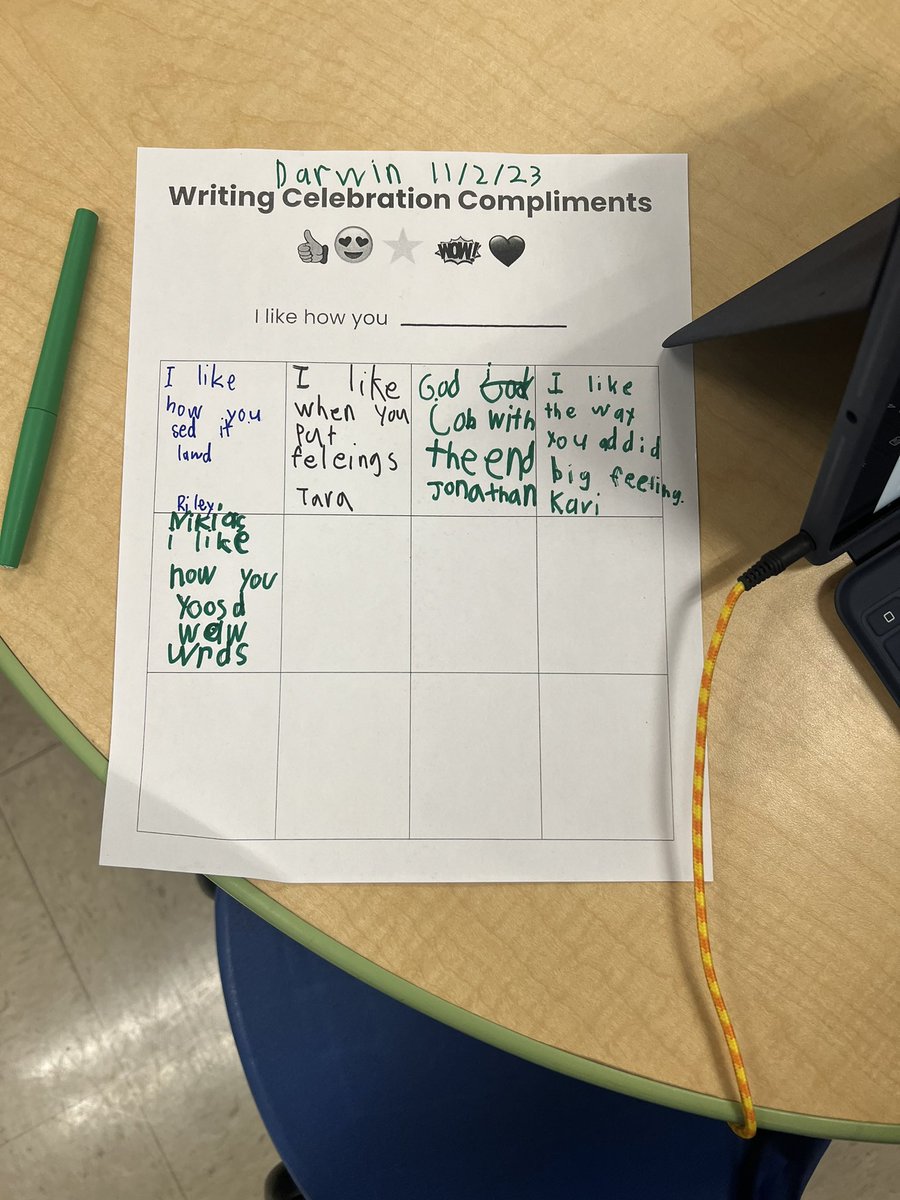 Darwin 11/2/23
Writing Celebration Compliments
WOW!
I like how you
I like
how you
sed it
lawd
Riley
I like
when you
Put
feleings
Tara
God
Cob with
the end
Jonathan
I like
the way
you addid
big feeling.
Kari
Niklas
i like
how you
yoosd
waw
wrds